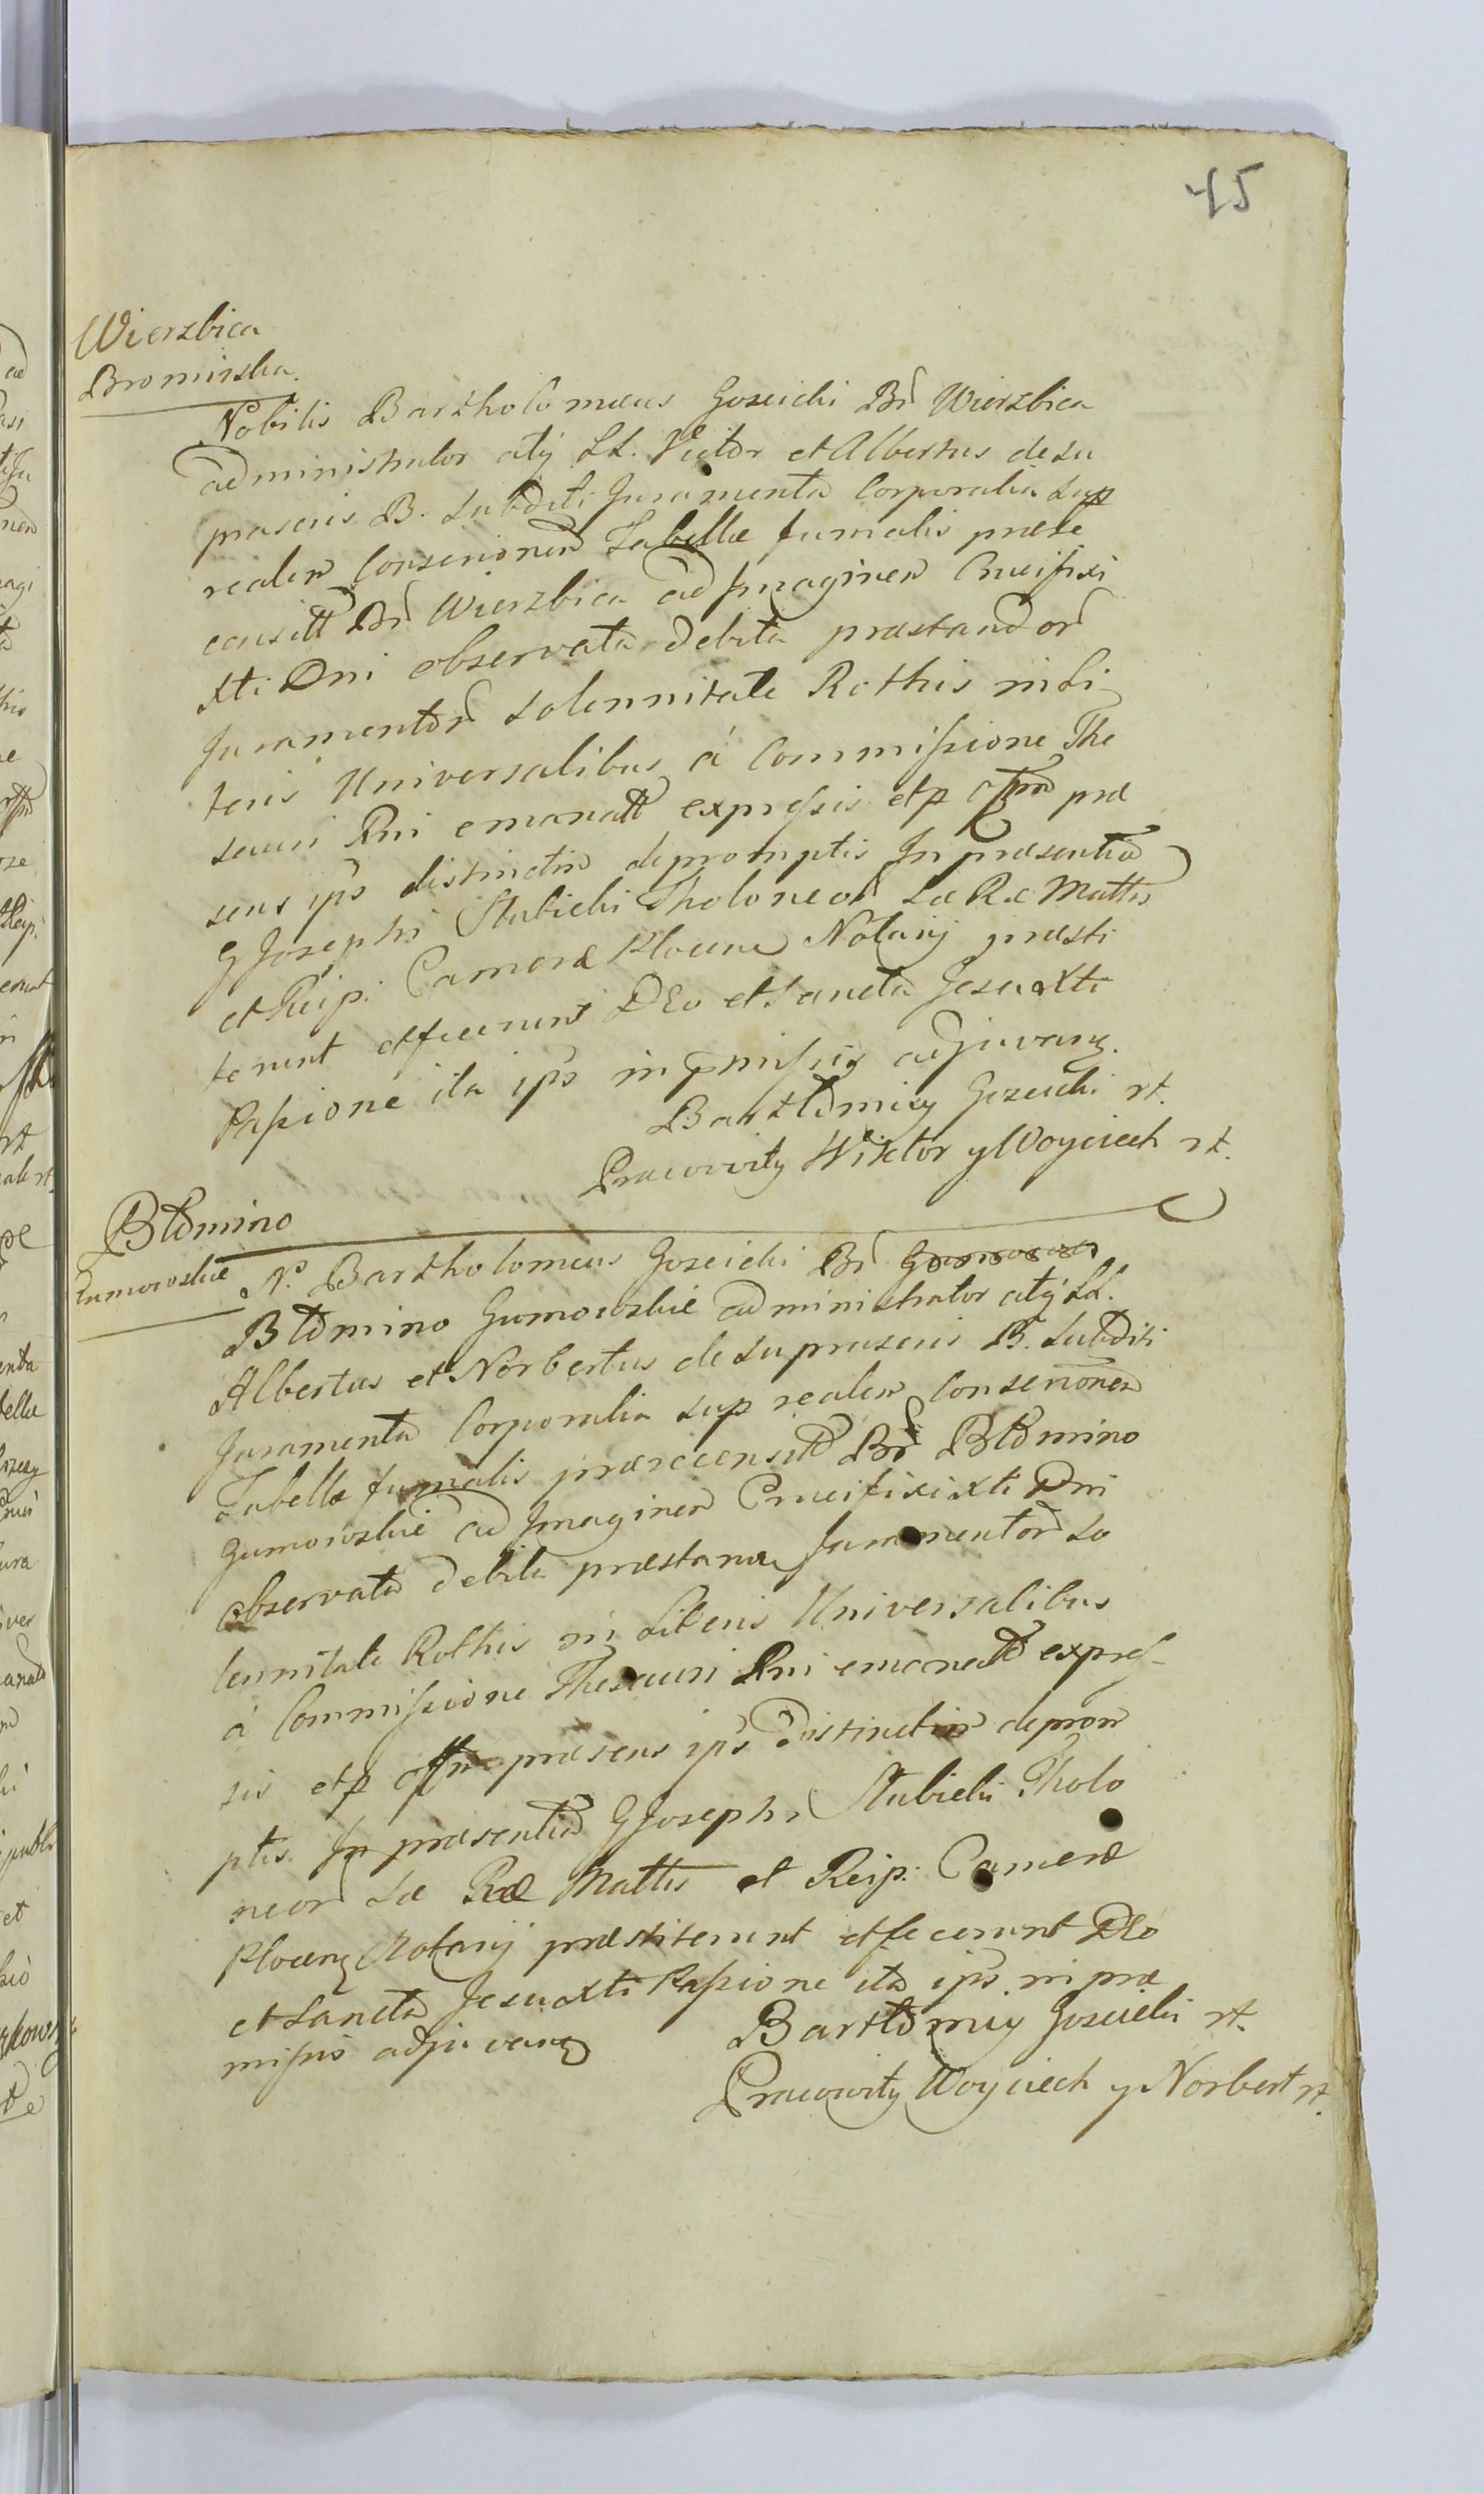 45
Wierzbica
Bromirska.
Nobilis Bartholomæus Gozicki Br Wierzbica
administrator atq LL. Victor et Albertus de su
praseris B. Subditi Juramenta Corporalia sup
realem Conscrionem Tabellæ fumalis prære
censitt Br Wierzbica ad Imaginem Crucifixi
Xti Dni observata debita præstandor
Juramentor solennitate Rothis in Li
teris Universalibus á Commissione The
sauri Rni emanatt expressis et p præ
sens ips distinctim depromptis In præsentia
G Josephi Słubicki Tholoneor Sæ Ræ Mattis
et Reip. Cameræ Plocens Notarij præsti
terunt et fecerunt DEo et Sancta Jesu Xti
Passione ita ips in pmissis adjuvanq.
Bartłomiey Gozicki rt.
Pracowity Wiktor y Woyciech rt.
Błomino
Gumowskie
N. Bartholomeus Gozicki Br
Błomino Gumowskie administrator atq LL.
Albertus et Norbertus de supraseris B. Subditi
Juramenta Corporalia sup realem Conscrionem
Tabellæ fumalis præreccensitt Br Błomino
Gumowskie ad Imaginem Crucifixi Xti Dni
observata debita præstanm Juramentor so
lennitate Rothis in Literis Universalibus
á Commissione Thesauri Rni emanatt expres-
sis et p præsens ips distinctim deprom
ptis In præsentia G Josephi Słubicki Tholo
neor Sæ Ræ Mattis et Reip. Cameræ
Plocens Notarij præstiterunt et fecerunt DEo
et Sancta Jesu Xti Passione ita ips in præ
missis adjuvanq
Bartłomiey Gozicki rt.
Pracowity Woyciech y Norbert rt.